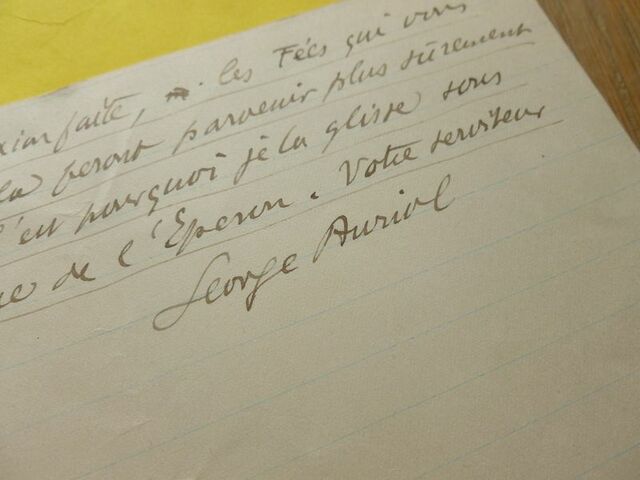 faite, les Fées qui vous
feront parvenir plus sûrement
C'est pourquoi je la glisse sous
de l'Eperon. Votre serviteur
George Auriol